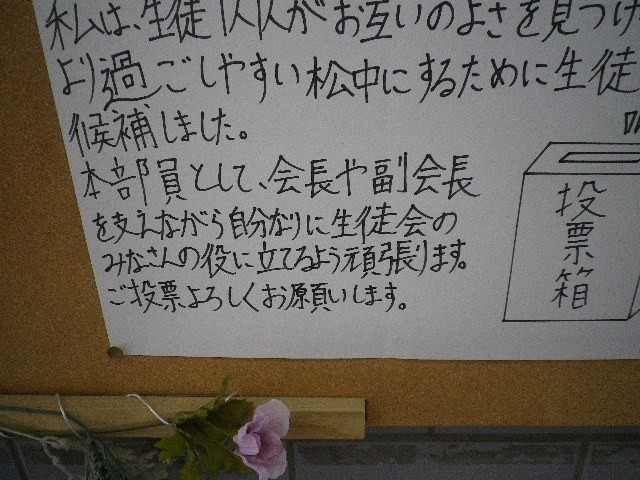 私は、生徒一人一人がお互いのよさを見つけ
より過ごしやすい松中にするために生徒
候補しました。
本部員として、会長や副会長
を支えながら自分なりに生徒会の
みなさんの役に立てるよう頑張ります。
ご投票よろしくお願いします。
投票箱